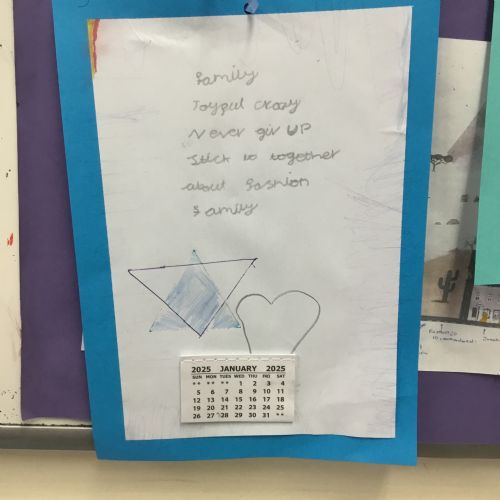 family
Joyful crazy
Never giv UP
Stick to together
about fashion
family
2025 JANUARY 2025
SUN MON TUES WED THU FRI SAT
** ** ** 1 2 3 4
5 6 7 8 9 10 11
12 13 14 15 16 17 18
19 20 21 22 23 24 25
26 27 28 29 30 31 **